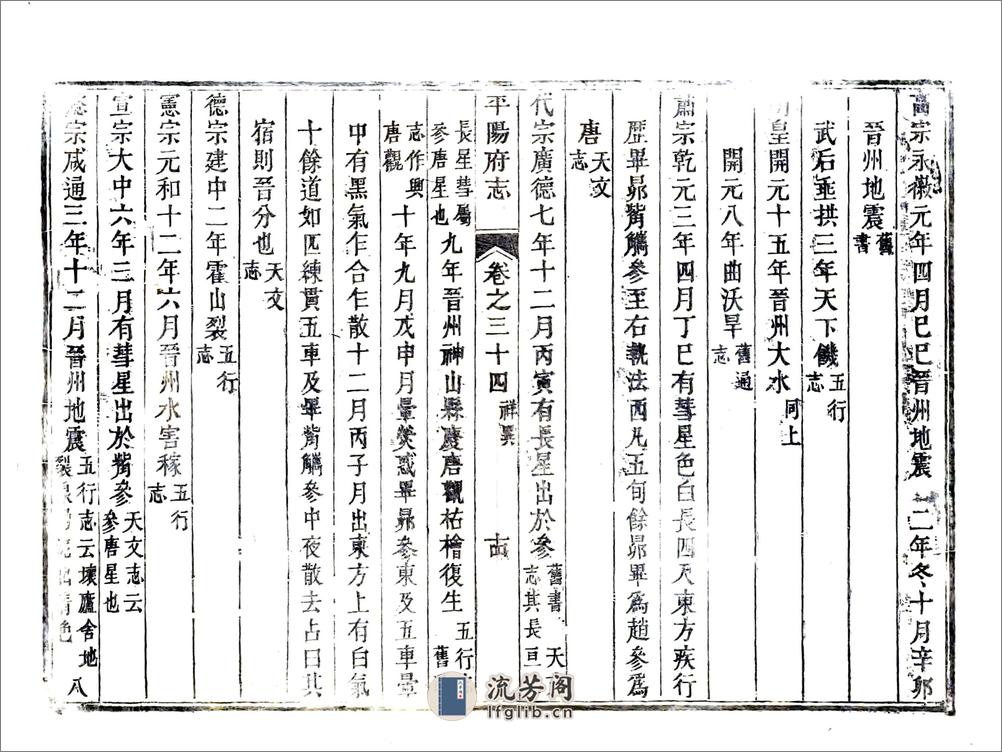 高宗永徽元年四月己巳晉州地震 二年冬十月辛卯
晉州地震舊書
武后垂拱三年天下饑五行志
皇開元十五年晉州大水同上
開元八年曲沃旱舊通志
肅宗乾元三年四月丁巳有彗星色白長四尺東方疾行
歷畢昴觜觿參至右執法西凡五旬餘昴畢爲趙參爲
唐天文志
代宗廣德七年十二月丙寅有長星出於參舊書天志其長亘
平陽府志 卷之三十四 祥異 古
長星彗屬參唐星也 九年晉州神山縣慶唐觀枯檜復生五行舊
志作興唐觀 十年九月戊申月暈熒惑畢昴參東及五車暈
中有黑氣乍合乍散十二月丙子月出東方上有白氣
十餘道如匹練貫五車及畢觜觿參中夜散去占曰其
宿則晉分也天文志
德宗建中二年霍山裂五行志
憲宗元和十二年六月晉州水害稼五行志
宣宗大中六年三月有彗星出於觜參天文志云參唐星也
宗咸通三年十二月晉州地震五行志云壞廬舍地裂 八
流芳阁
lfglib.cn